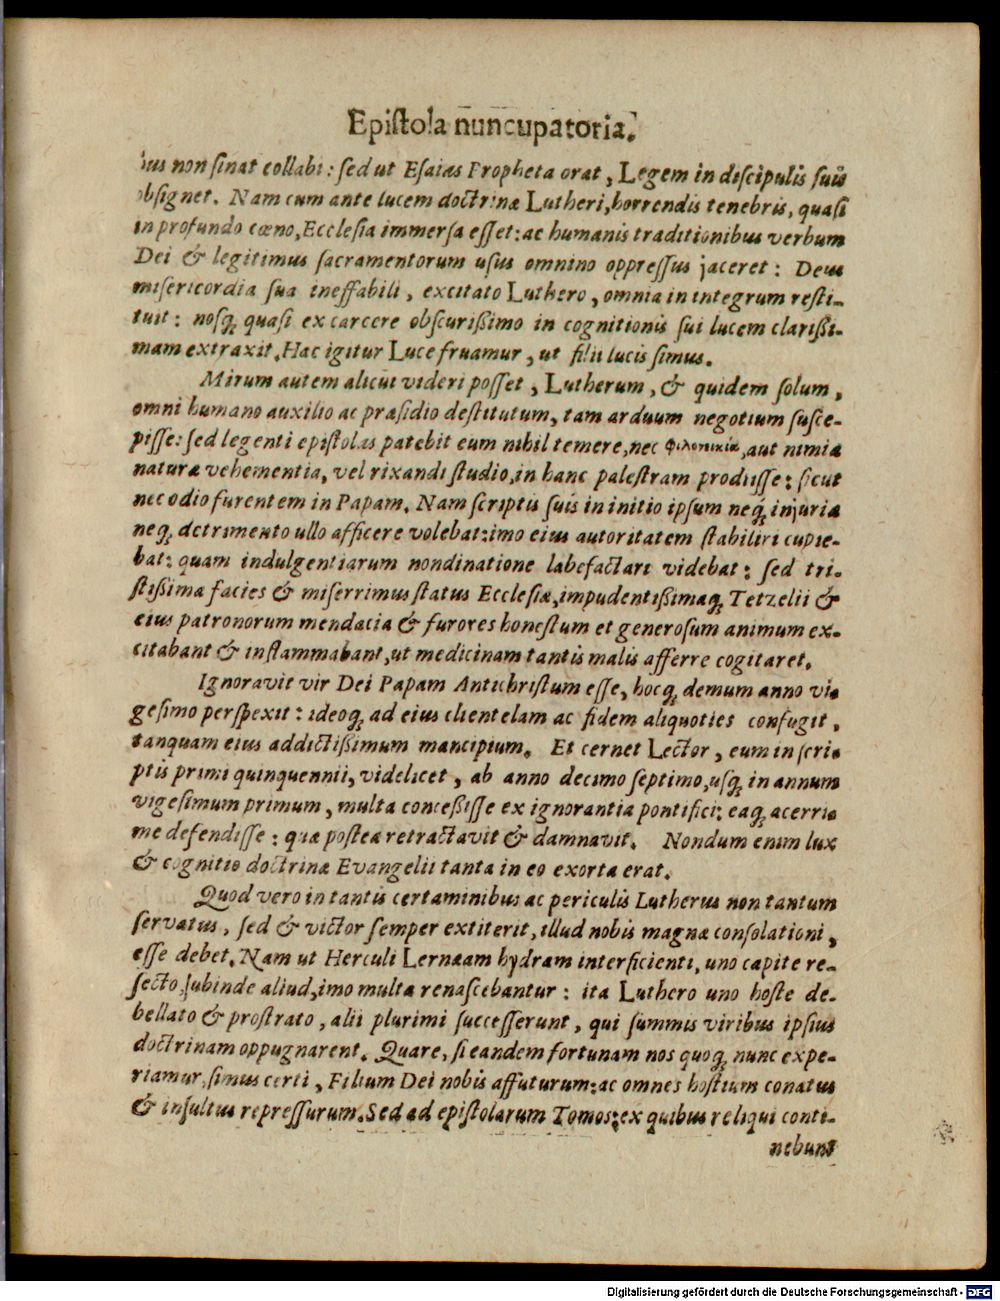 Epiſtola nuncupatoria.
ius non ſinat collabi: ſed ut Eſaias Propheta orat, Legem in diſcipulis ſuis
obſignet. Nam cum ante lucem doctrinæ Lutheri, horrendis tenebris, quaſi
in profundo cœno, Eccleſia immerſa eſſet: ac humanis traditionibus verbum
Dei & legitimus ſacramentorum uſus omnino oppreſſus jaceret: Deus
miſericordia ſua ineffabili, excitato Luthero, omnia in integrum reſti-
tuit: nosq́; quaſi ex carcere obſcurißimo in cognitionis ſui lucem clarißi-
mam extraxit. Hac igitur Luce fruamur, ut filii lucis ſimus.
Mirum autem alicui videri poſſet, Lutherum, & quidem ſolum,
omni humano auxilio ac præſidio deſtitutum, tam arduum negotium ſuſce-
piſſe: ſed legenti epiſtolas patebit eum nihil temere, nec φιλονεικία, aut nimia
naturæ vehementia, vel rixandi ſtudio, in hanc paleſtram prodiiſſe: ſicut
nec odio furentem in Papam. Nam ſcriptis ſuis in initio ipſum neq́; injuria
neq́; detrimento ullo afficere volebat: imo eius autoritatem ſtabiliri cupie-
bat: quam indulgentiarum nondinatione labefactari videbat: ſed tri-
ſtißima facies & miſerrimus ſtatus Eccleſiæ, impudentißimaq́; Tetzelii &
eius patronorum mendacia & furores honeſtum et generoſum animum ex-
citabant & inflammabant, ut medicinam tantis malis afferre cogitaret.
Ignoravit vir Dei Papam Antichriſtum eſſe, hocq́; demum anno vi-
geſimo perſpexit: ideoq́; ad eius clientelam ac fidem aliquoties confugit,
tanquam eius addictißimum mancipium. Et cernet Lector, eum in ſcri-
ptis primi quinquennii, videlicet, ab anno decimo ſeptimo, uſq́; in annum
vigeſimum primum, multa conceßiſſe ex ignorantia pontifici: eaq́; acerri-
me defendiſſe: quæ poſtea retractavit & damnavit. Nondum enim lux
& cognitio doctrinæ Evangelii tanta in eo exorta erat.
Quod vero in tantis certaminibus ac periculis Lutherus non tantum
ſervatus, ſed & victor ſemper extiterit, illud nobis magnæ conſolationi,
eſſe debet. Nam ut Herculi Lernæam hydram interficienti, uno capite re-
ſecto, ſubinde aliud, imo multa renaſcebantur: ita Luthero uno hoſte de-
bellato & proſtrato, alii plurimi ſucceſſerunt, qui ſummis viribus ipſius
doctrinam oppugnarent. Quare, ſi eandem fortunam nos quoq́; nunc expe-
riamur, ſimus certi, Filium Dei nobis affuturum: ac omnes hoſtium conatus
& inſultus repreſſurum. Sed ad epiſtolarum Tomos: ex quibus reliqui conti-
nebunt
Digitalisierung gefördert durch die Deutsche Forschungsgemeinschaft - DFG